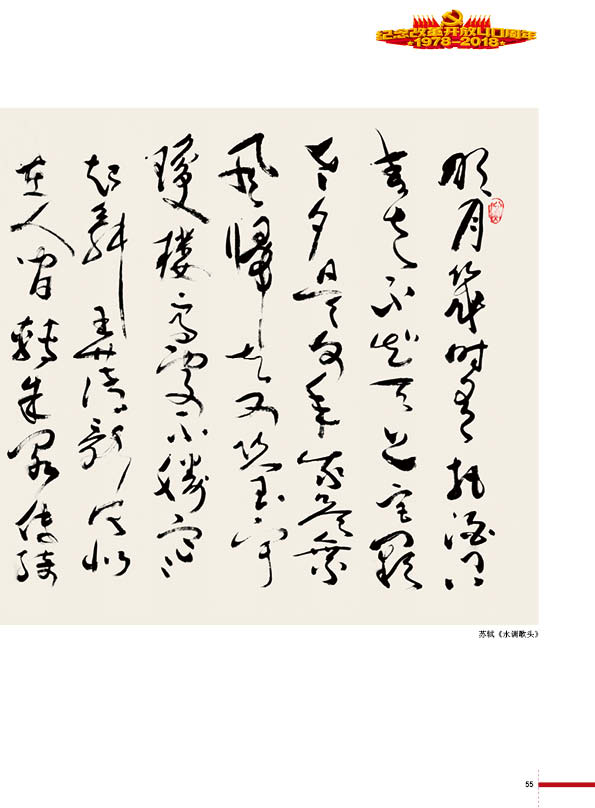 纪念改革开放40周年
1978-2018
明月幾时有把酒问
青天不知天上宫阙
今夕是何年我欲乘
風歸去又恐玉宇
瓊樓高處不勝寒
起舞弄清影何似
在人间转朱阁低绮
苏轼《水调歌头》
55